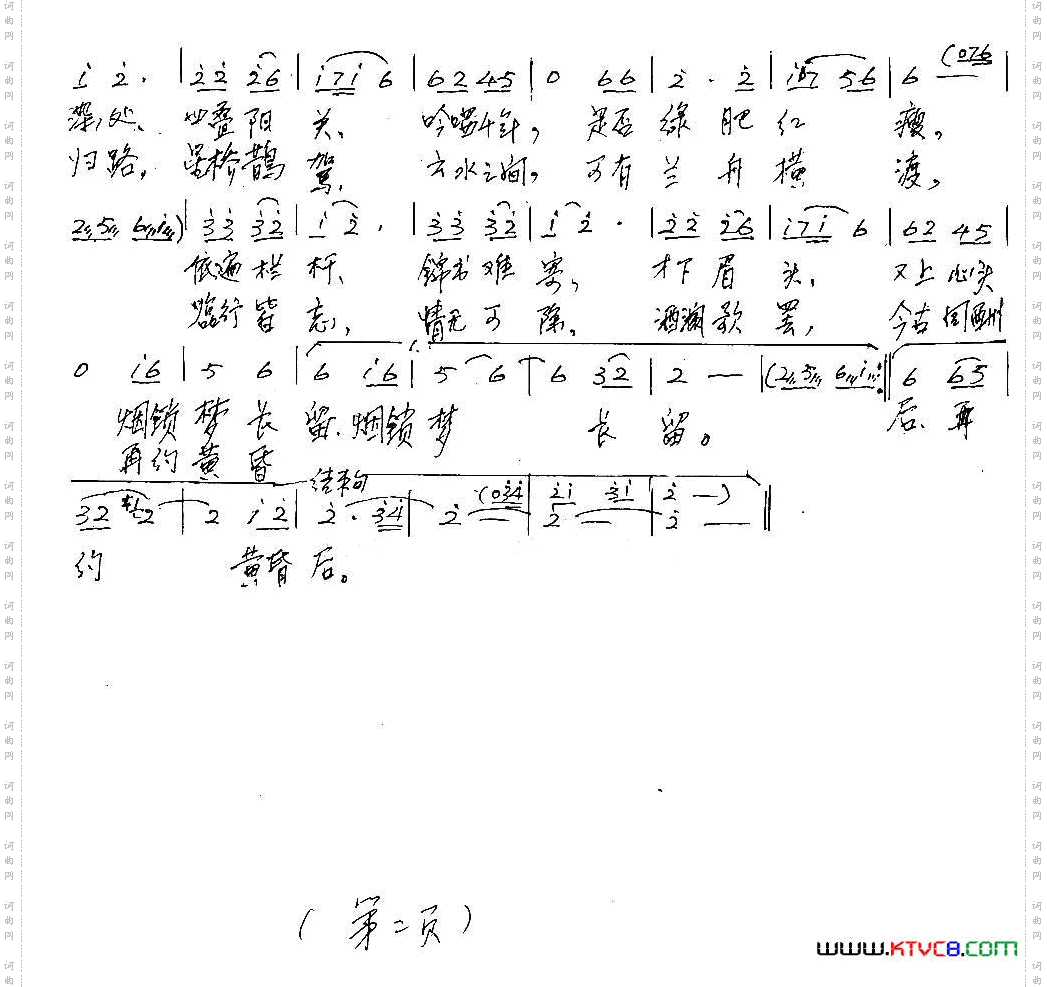 i 2 · | 22 26 | i7i 6 | 62 45 | 0 66 | 2 · 2 | i7 56 | 6 (076 |
深处、四叠阳关、吟喁4年，是否绿肥红瘦，
归路，星桥鹊驾，云水之间，可有兰舟横渡，
2 5 6 i) | 33 32 | i 2 · | 33 32 | i 2 · | 22 26 | i7i 6 | 62 45 |
依遍栏杆、锦书难寄，才下眉头，又上心头
临行皆忘，情无可除，酒澜歌罢，今古同酬
0 i6 | 5 6 | 6 i6 | 5 6 | 6 32 | 2 — | (2 5 6 i :‖ 6 65 |
烟锁梦长留、烟锁梦长留。后、再
再约黄昏
结束句
(034 | 2i 3i | 2 —)
32 #12 | 2 i2 | 2 · 34 | 2 — | 2 — | 2 — ‖
约黄昏后。
(第二页)
www.KTVC8.com
词曲网